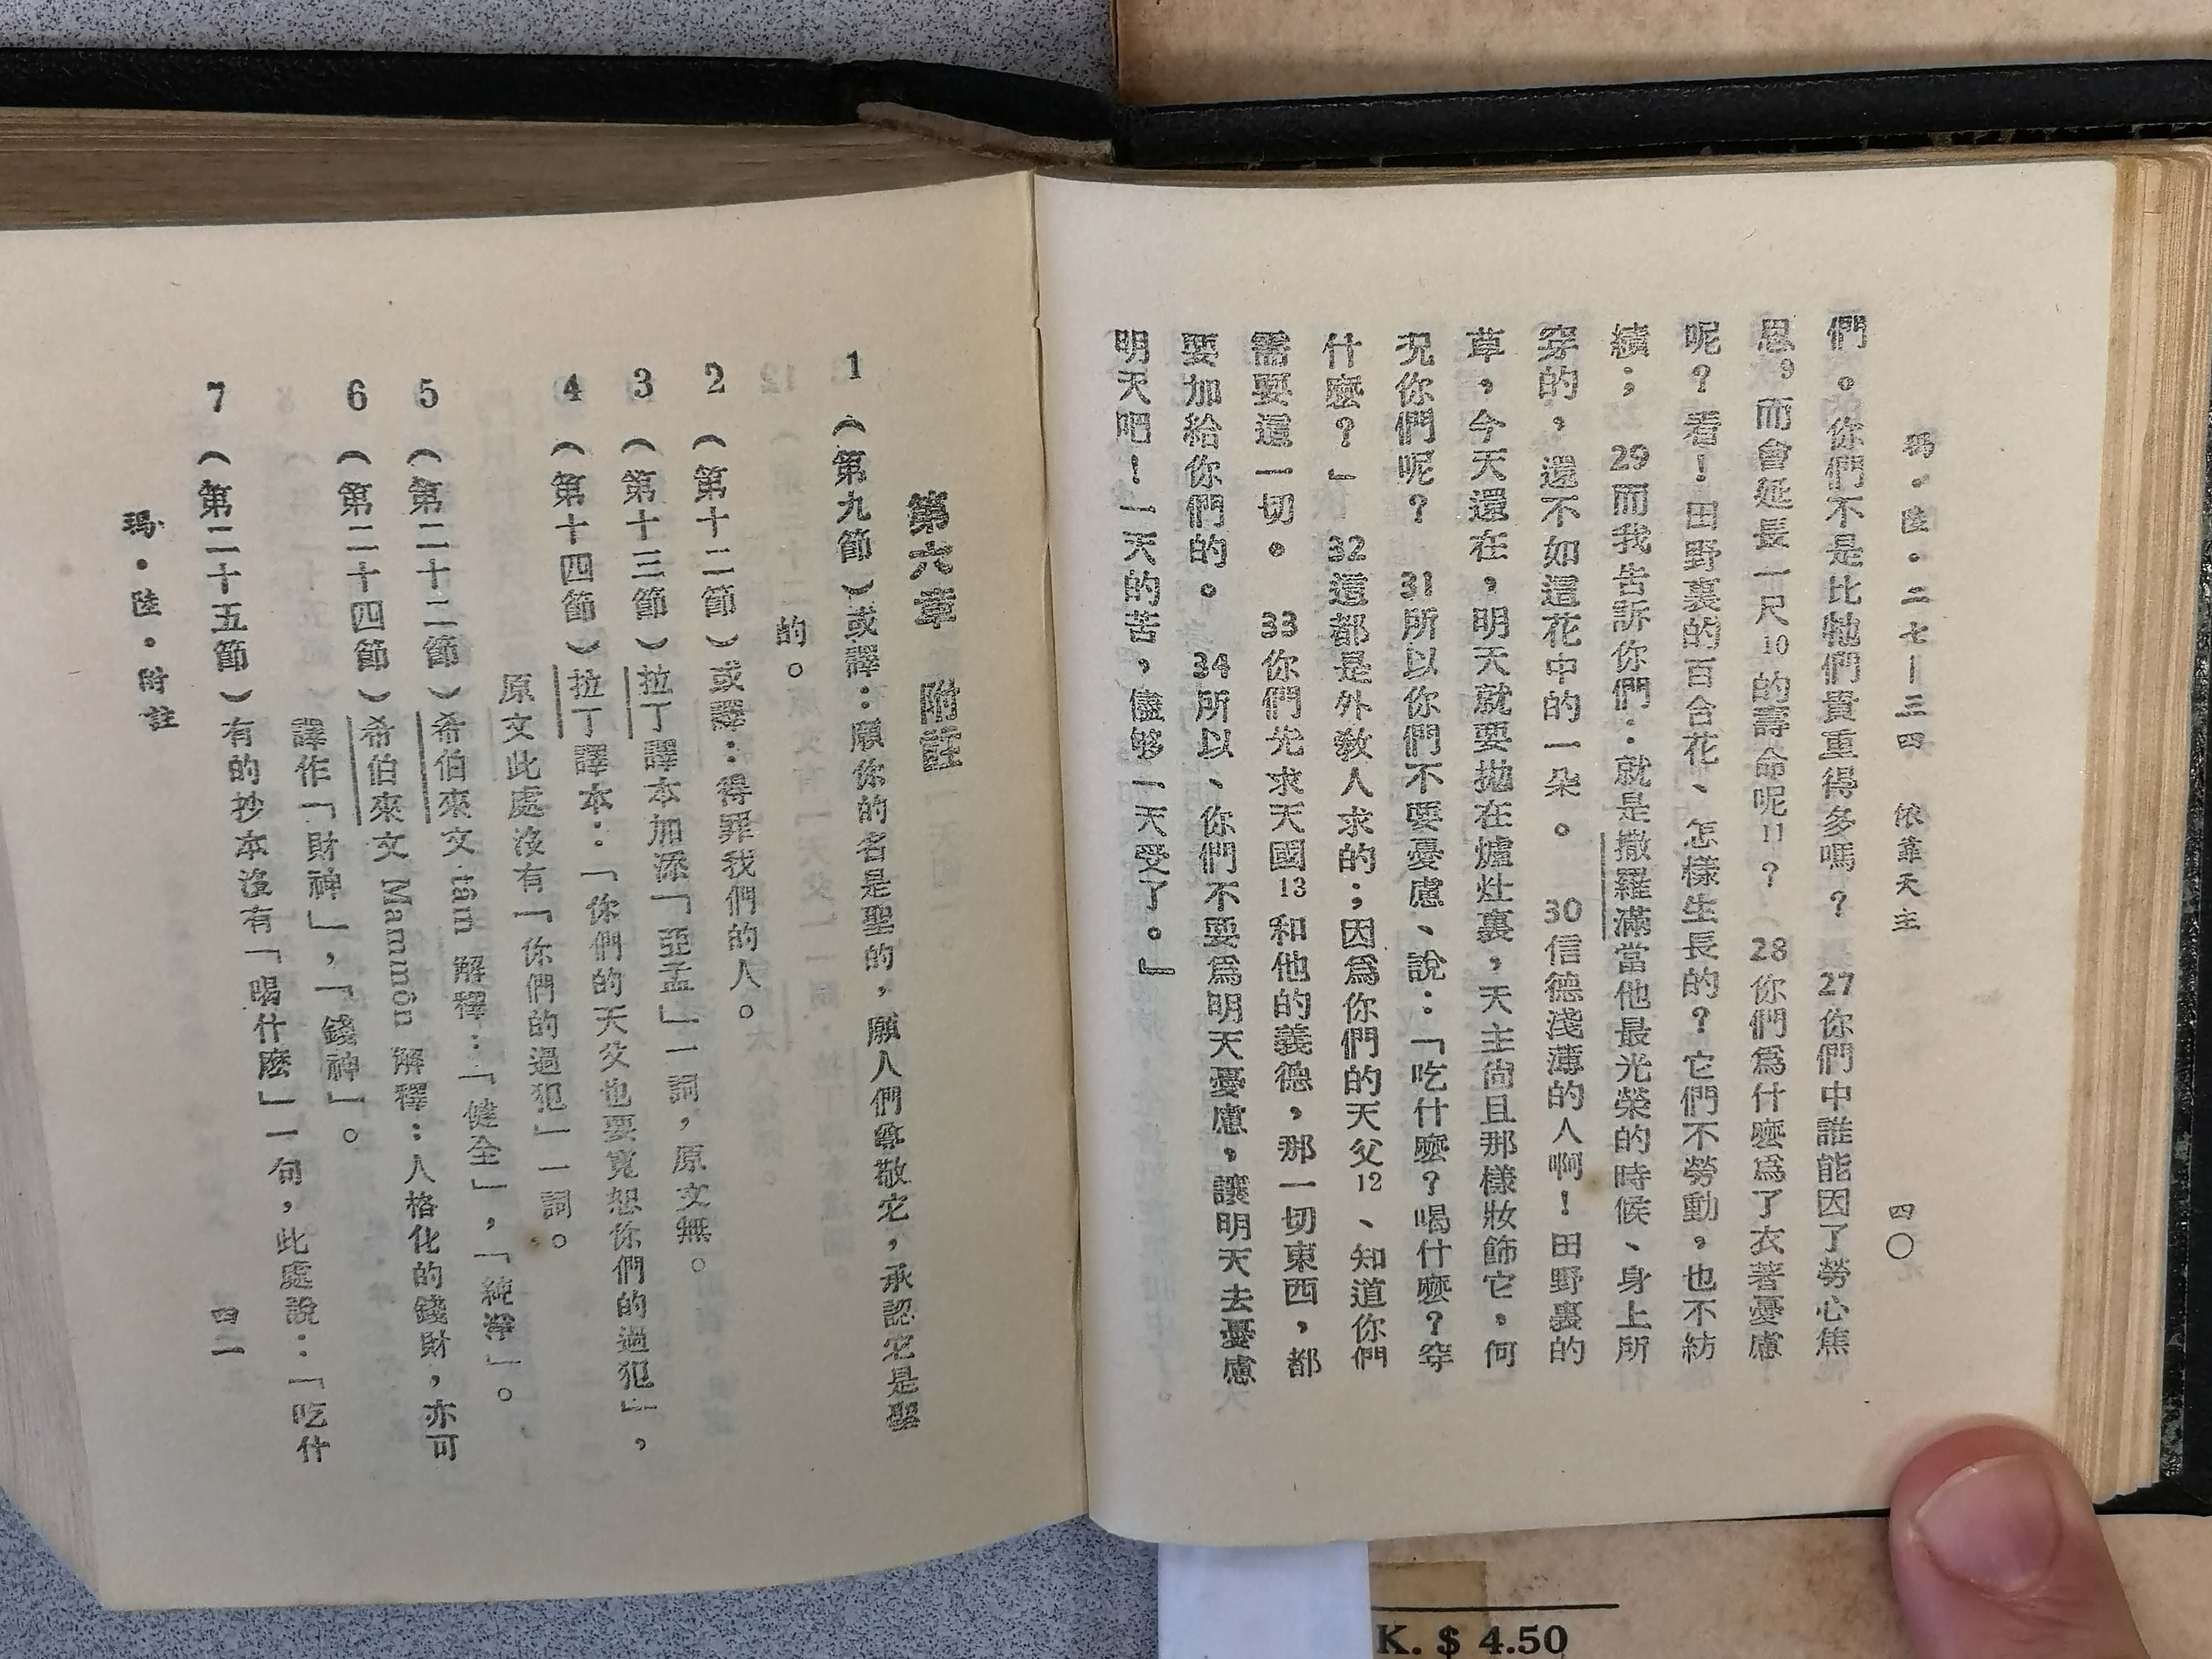 瑪・陸・二七—三四　依靠天主　四〇
們。你們不是比牠們貴重得多嗎？　27你們中誰能因了勞心焦
思9，而會延長一尺10的壽命呢11？　28你們爲什麼爲了衣著憂慮
呢？看！田野裏的百合花、怎樣生長的？它們不勞動，也不紡
績；　29而我告訴你們：就是撒羅滿當他最光榮的時候、身上所
穿的，還不如這花中的一朵。　30信德淺薄的人啊！田野裏的
草，今天還在，明天就要拋在爐灶裏，天主尙且那樣妝飾它，何
況你們呢？　31所以你們不要憂慮、說：「吃什麼？喝什麼？穿
什麼？」　32這都是外敎人求的；因爲你們的天父12、知道你們
需要這一切。　33你們先求天國13和他的義德，那一切東西，都
要加給你們的。　34所以、你們不要爲明天憂慮，讓明天去憂慮
明天吧！一天的苦，儘够一天受了。』
第六章　附註
1（第九節）或譯：願你的名是聖的，願人們尊敬它，承認它是聖
的。
2（第十二節）或譯：得罪我們的人。
3（第十三節）拉丁譯本加添「亞孟」一詞，原文無。
4（第十四節）拉丁譯本：「你們的天父也要寬恕你們的過犯」，
原文此處沒有「你們的過犯」一詞。
5（第二十二節）希伯來文 tâm 解釋：「健全」，「純淨」。
6（第二十四節）希伯來文 Mammôn 解釋：人格化的錢財，亦可
譯作「財神」，「錢神」。
7（第二十五節）有的抄本沒有「喝什麽」一句，此處說：「吃什
瑪・陸・附註
四一
K. $ 4.50